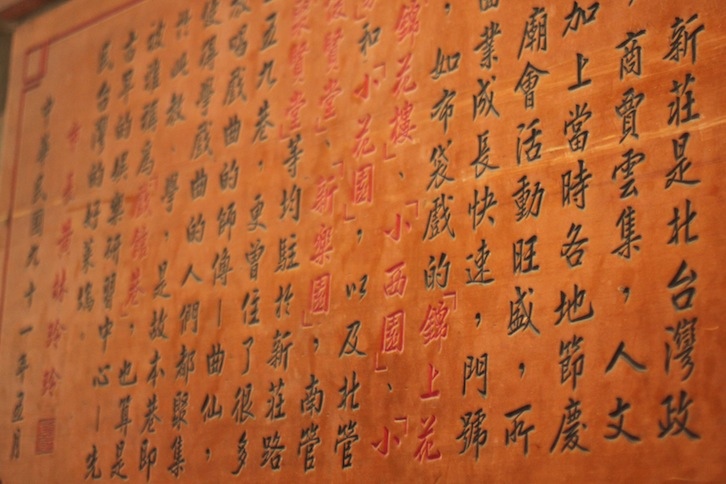 新莊是北台灣政
商賈雲集，人文
加上當時各地節慶
廟會活動旺盛，所
業成長快速，門號
，如布袋戲的「錦上花
錦花樓」、「小西園」、「小
和「小花園」，以及北管
賢堂」、「新樂園」，南管
聚賢堂」等均駐於新莊路
五九巷，更曾住了很多
戲曲的師傅－曲仙，
得學戲曲的人們都聚集
於此教、學，是故本巷即
被雅稱為「戲館巷」，也算是
古早的娛樂研習中心－先
民台灣的好萊塢。
市長黃林玲玲
中華民國九十一年五月